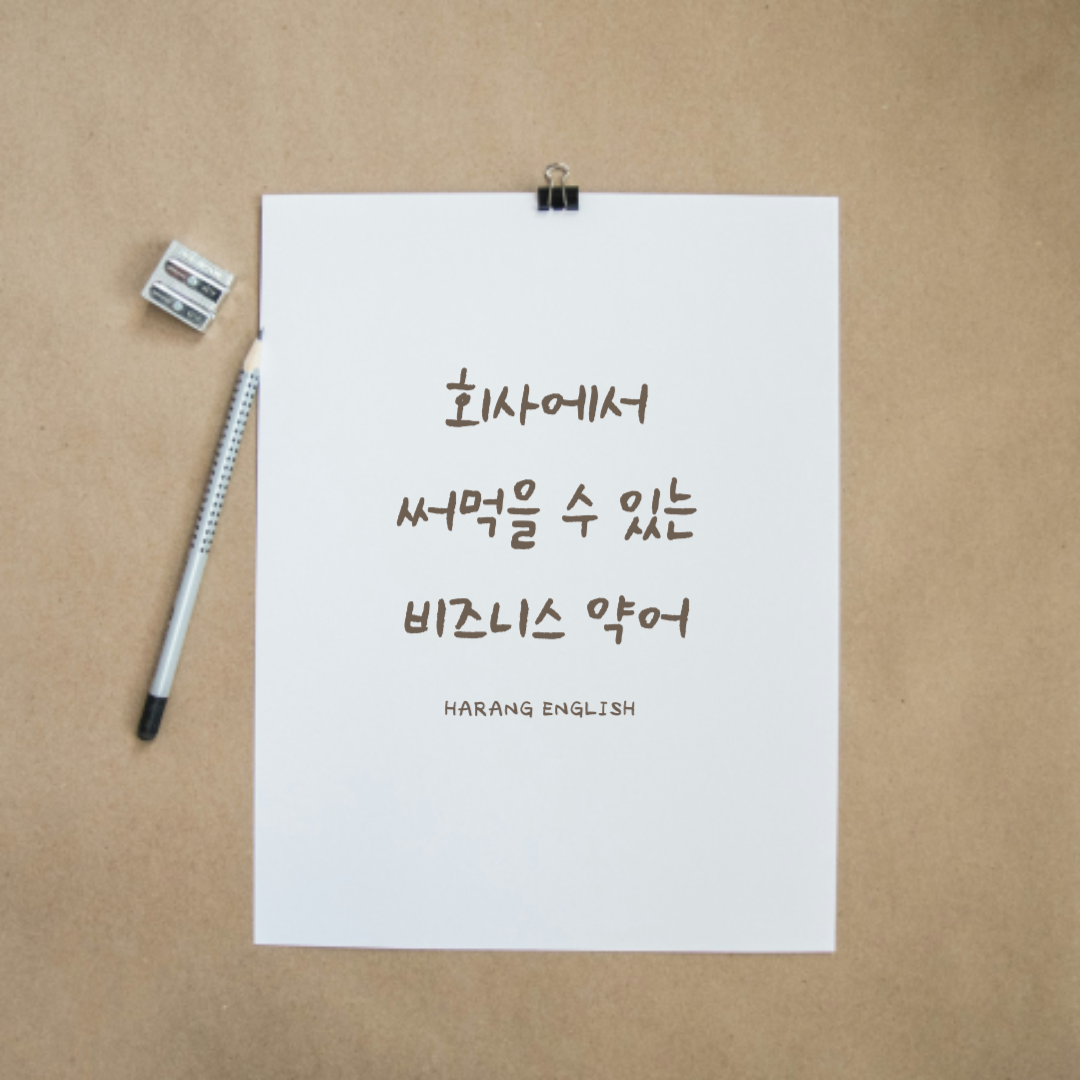 회사에서
써먹을 수 있는
비즈니스 약어
HARANG ENGLISH